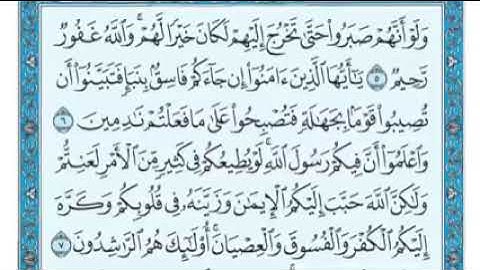 وَلَوْ أَنَّهُمْ صَبَرُوا۟ حَتَّىٰ تَخْرُجَ إِلَيْهِمْ لَكَانَ خَيْرًا لَّهُمْ ۚ وَٱللَّهُ غَفُورٌ
رَّحِيمٌ ٥ يَـٰٓأَيُّهَا ٱلَّذِينَ ءَامَنُوٓا۟ إِن جَآءَكُمْ فَاسِقٌۢ بِنَبَإٍ فَتَبَيَّنُوٓا۟ أَن
تُصِيبُوا۟ قَوْمًۢا بِجَهَـٰلَةٍ فَتُصْبِحُوا۟ عَلَىٰ مَا فَعَلْتُمْ نَـٰدِمِينَ ٦
وَٱعْلَمُوٓا۟ أَنَّ فِيكُمْ رَسُولَ ٱللَّهِ ۚ لَوْ يُطِيعُكُمْ فِى كَثِيرٍ مِّنَ ٱلْأَمْرِ لَعَنِتُّمْ
وَلَـٰكِنَّ ٱللَّهَ حَبَّبَ إِلَيْكُمُ ٱلْإِيمَـٰنَ وَزَيَّنَهُۥ فِى قُلُوبِكُمْ وَكَرَّهَ
إِلَيْكُمُ ٱلْكُفْرَ وَٱلْفُسُوقَ وَٱلْعِصْيَانَ ۚ أُو۟لَـٰٓئِكَ هُمُ ٱلرَّٰشِدُونَ ٧